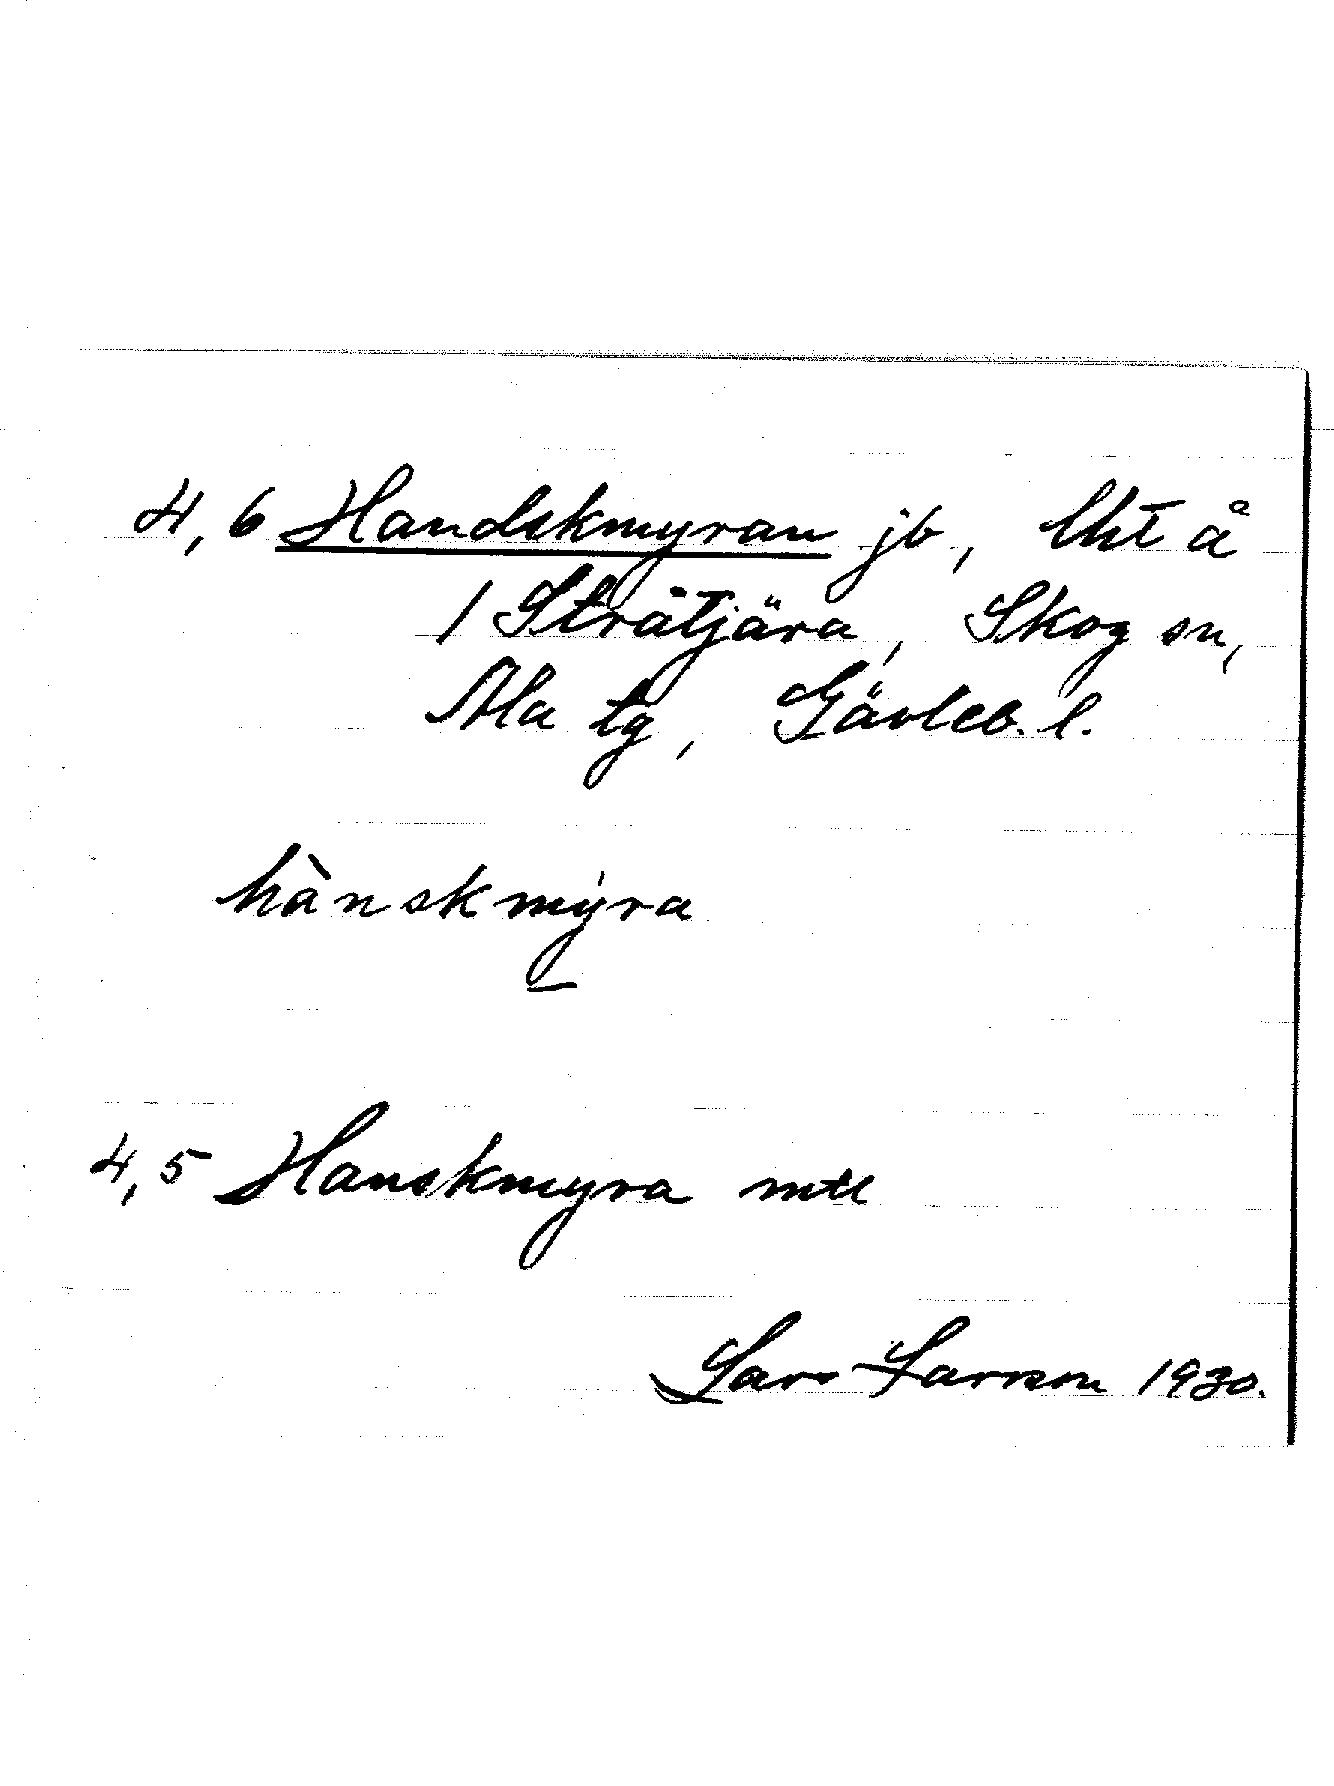 4,6 Handskmyran jb, Uht å
1 Stråtjära, Skog sn,
Ala tg, Gävleb. l.
hànskmýra
4,5 Hanskmyra mtl
Lars Larsson 1930.